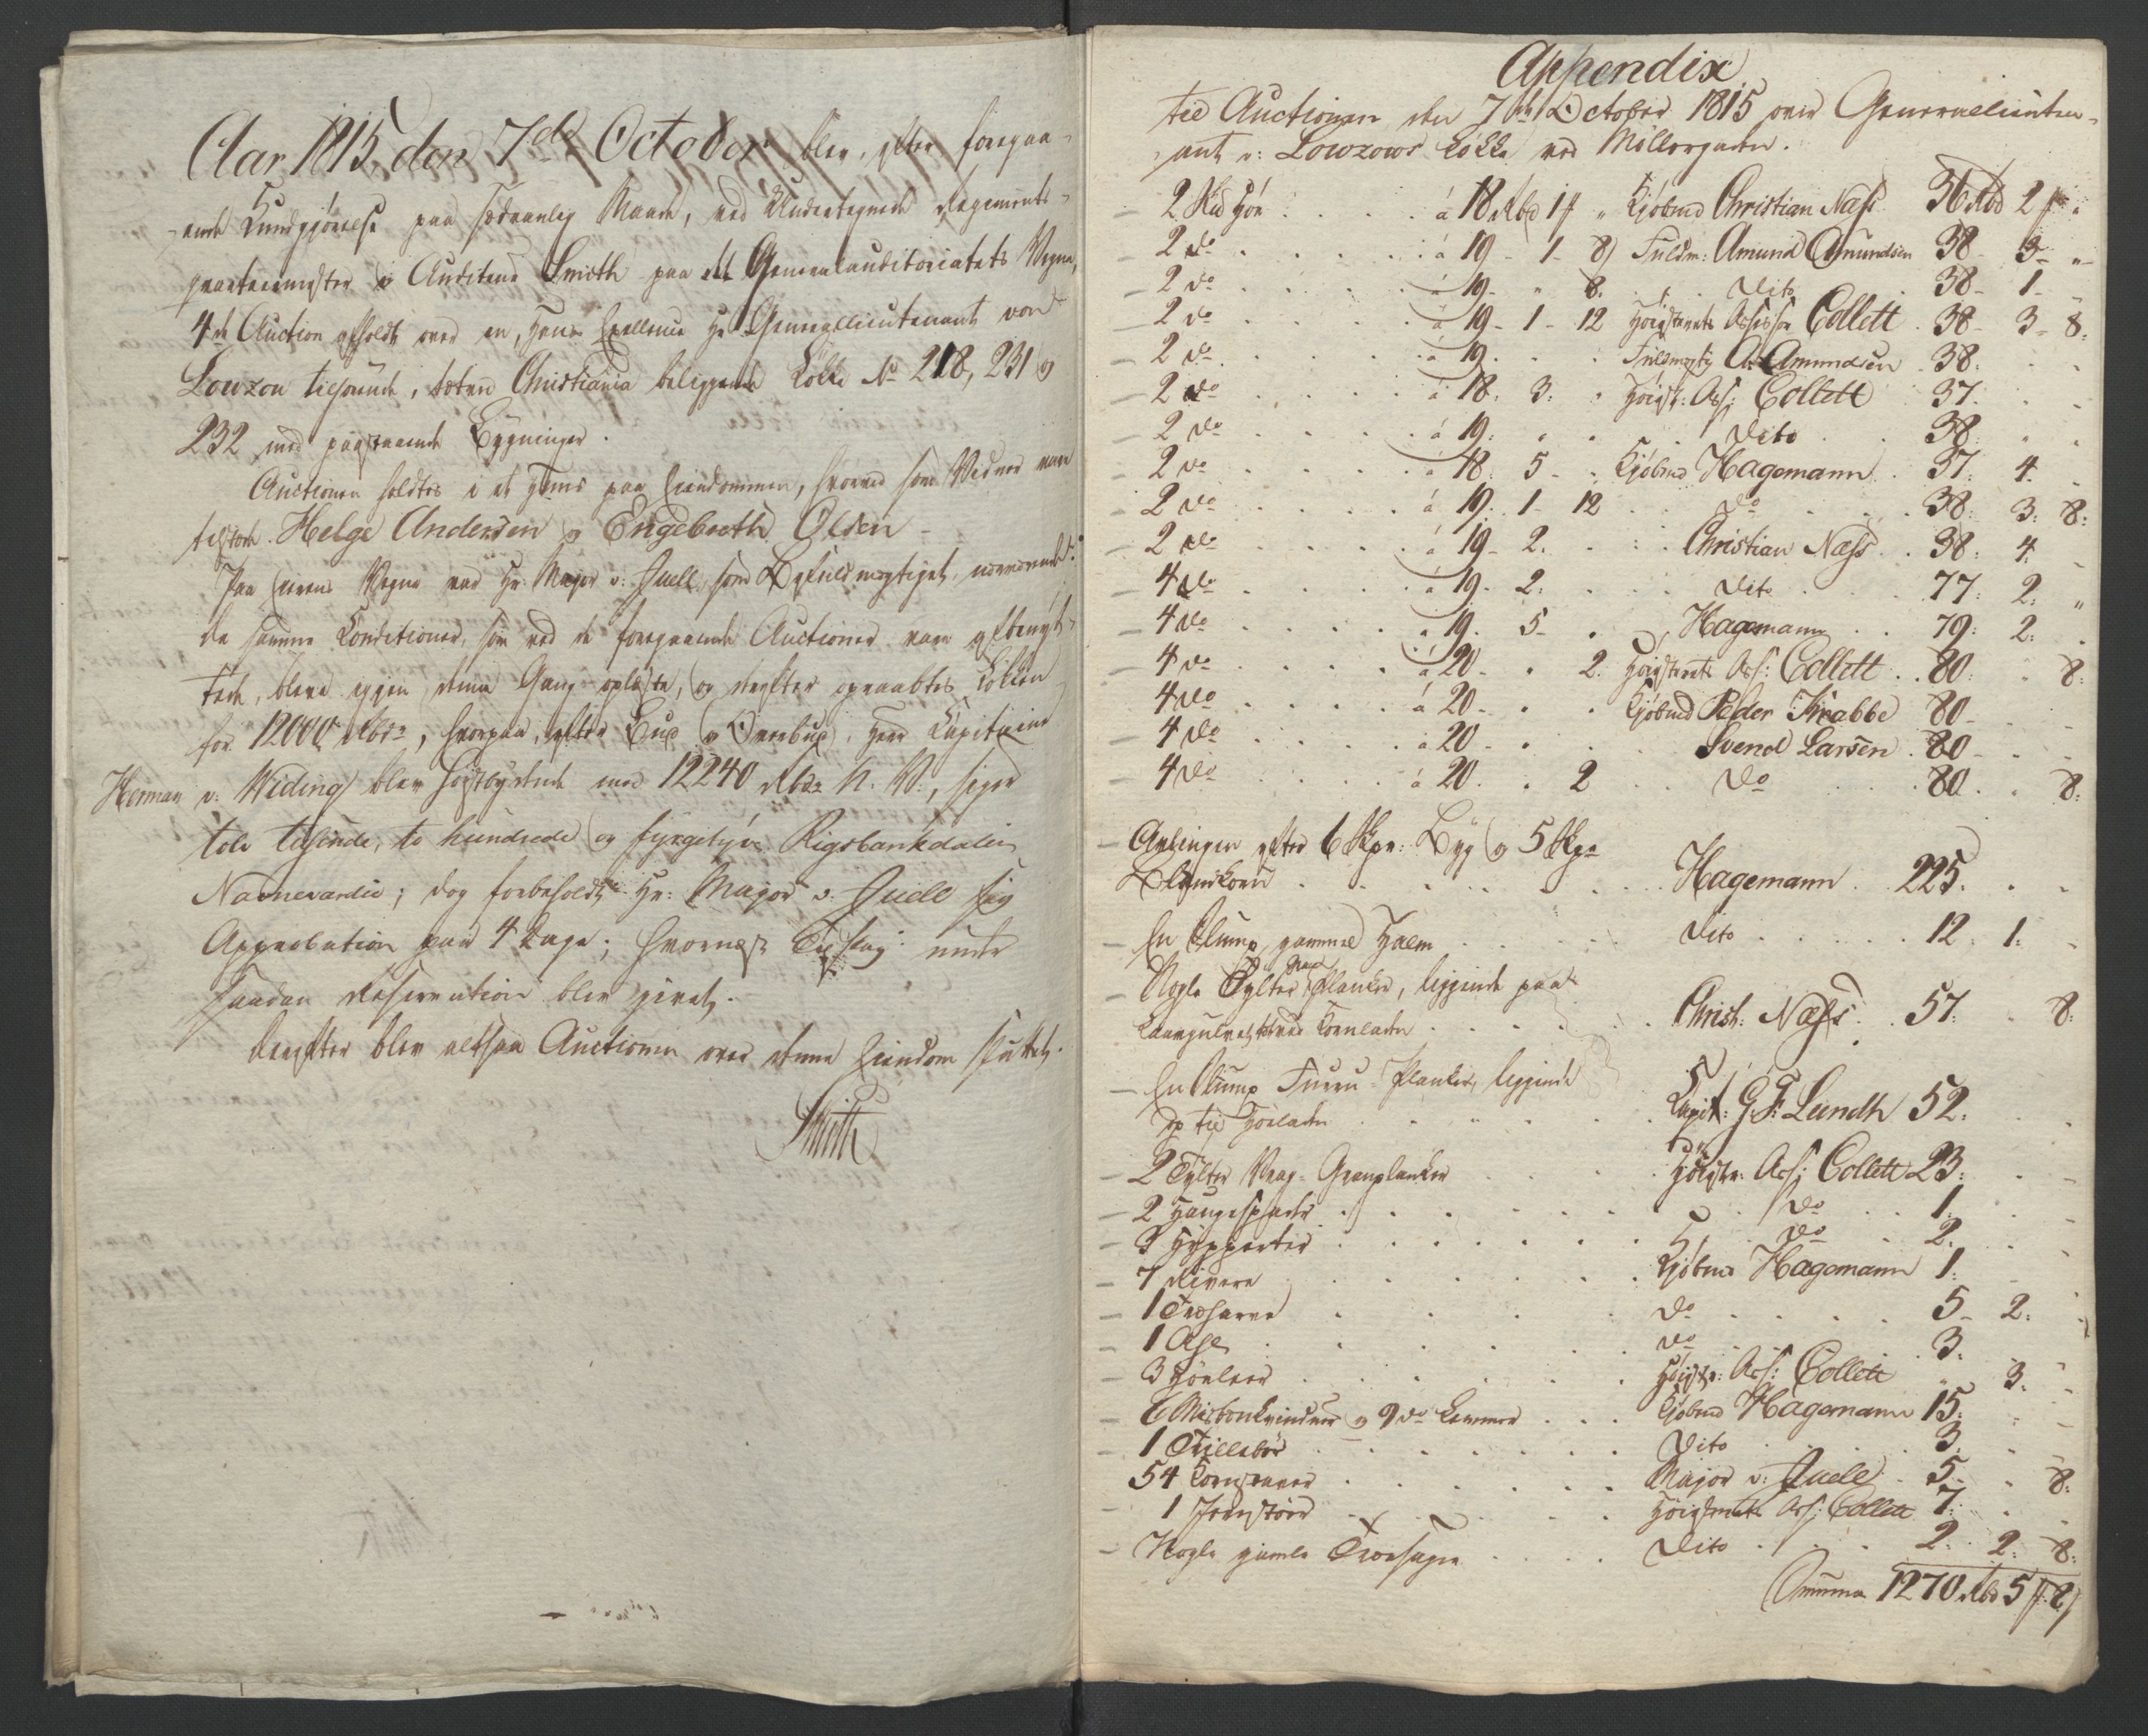 Aar 1815, den 7de October blev, efter foregaa-
-ende Kundgjørelse paa sædvanlig Maade, ved Undertegnede Regiments-
qvarteermester og Auditeur Smith paa det Generalauditoriatets Vegne,
4de Auction afholdt over en, Hans Excellence Hr Generallieutenant von
Lowzow tilhørende, uden Christiania beliggende Løkke No 218, 231 og
232 med paastaaende Bygninger.
Auctionen holdtes i et Huus paa Eiendommen, hvorved som Vidner vare
tilstede Helge Andersen og Engebreth Olsen
Paa Eierens Vegne var Hr: Major v: Juell som Befuldmægtiget nærværende.
De samme Conditioner, som ved de foregaaende Auctioner vare afbenyt-
tede, bleve igjen denne Gang oplæste, og derefter opraabtes Løkken
for 12000 Rbdr, hvorpaa, efter Bud og Overbud, Herr Capitaine
Herman v: Weding blev høistbydende med 12240 Rbdr N. V., siger
tolv tusinde, to hundrede og fyrgetyve Rigsbankdaler
Navneværdie; dog forbeholdt Hr: Major v: Juell sig
Approbation paa 4 Dage; hvornæst Tilslag under
saadan Reservation blev givet.
Derefter blev altsaa Auctionen over denne Eiendom sluttet.
Smith
Appendix
til Auctionen den 7de October 1815 over Generallieuten-
-ant v: Lowzows Løkke ved Møllergaden.
2 Skd Høe á 18 Rbd 1 f " Kjøbmd Christian Næss 36 Rbd 2 f "
2 do á 19 - 1 - 8 Fuldm: Amund Amundsen 38 - 3 - "
2 do á 19 - " 8. Dito 38 - 1 -
2 do á 19 - 1 - 12 Høiesterets Assessor Collett 38 - 3 - 8.
2 do á 19. Fuldmægtig A. Amundsen 38.
2 do á 18. 3. Høiestr: Ass: Collett 37.
2 do á 19. Dito 38
2 do á 18. 5 - Kjøbmd Hagemann 37. 4.
2 do á 19. 1 - 12 do 38. 3. 8.
2 do á 19 - 2. Christian Næss 38. 4.
4 do á 19 - 2. Dito 77. 2. "
4 do á 19. 5 - Hagemann 79. 2.
4 do á 20 - " 2. Høiesterets Ass: Collett 80. 8.
4 do á 20 - Kjøbmd Peder Krabbe 80 -
4 do á 20 - Svend Larsen 80 -
4 do á 20. 2 do 80. 8.
Avlingen efter 6 Skpr: Byg og 5 Skpr
Blandkorn Hagemann 225.
En Klump gammel Halm Dito 12. 1.
Nogle Tylter Vrag Planker, liggende paa
Laavgulvet ved Kornladen Christ: Næss 57. 8.
En Klump Furru Planker, liggende
op til Høeladen Capit: G. F: Lundh 52.
2 Tylter Vrag-Granplanker Høiestr: Ass: Collett 23.
2 do 1.
3 do 2.
7 River Kjøbmd Hagemann 1.
1 Træharve do 5 - 2.
1 do 3.
3 Høeleer Høiestr: Ass: Collett 3.
Kjøbmd Hagemann 15.
1 Trillebør Dito 3.
54 Kornstaver Major v: Juell 5 - 8.
1 Jernstør Høiesterets Ass: Collett 7.
Nogle gamle Dito 2. 2. 8.
Summa 1270 Rbd 5 f 8